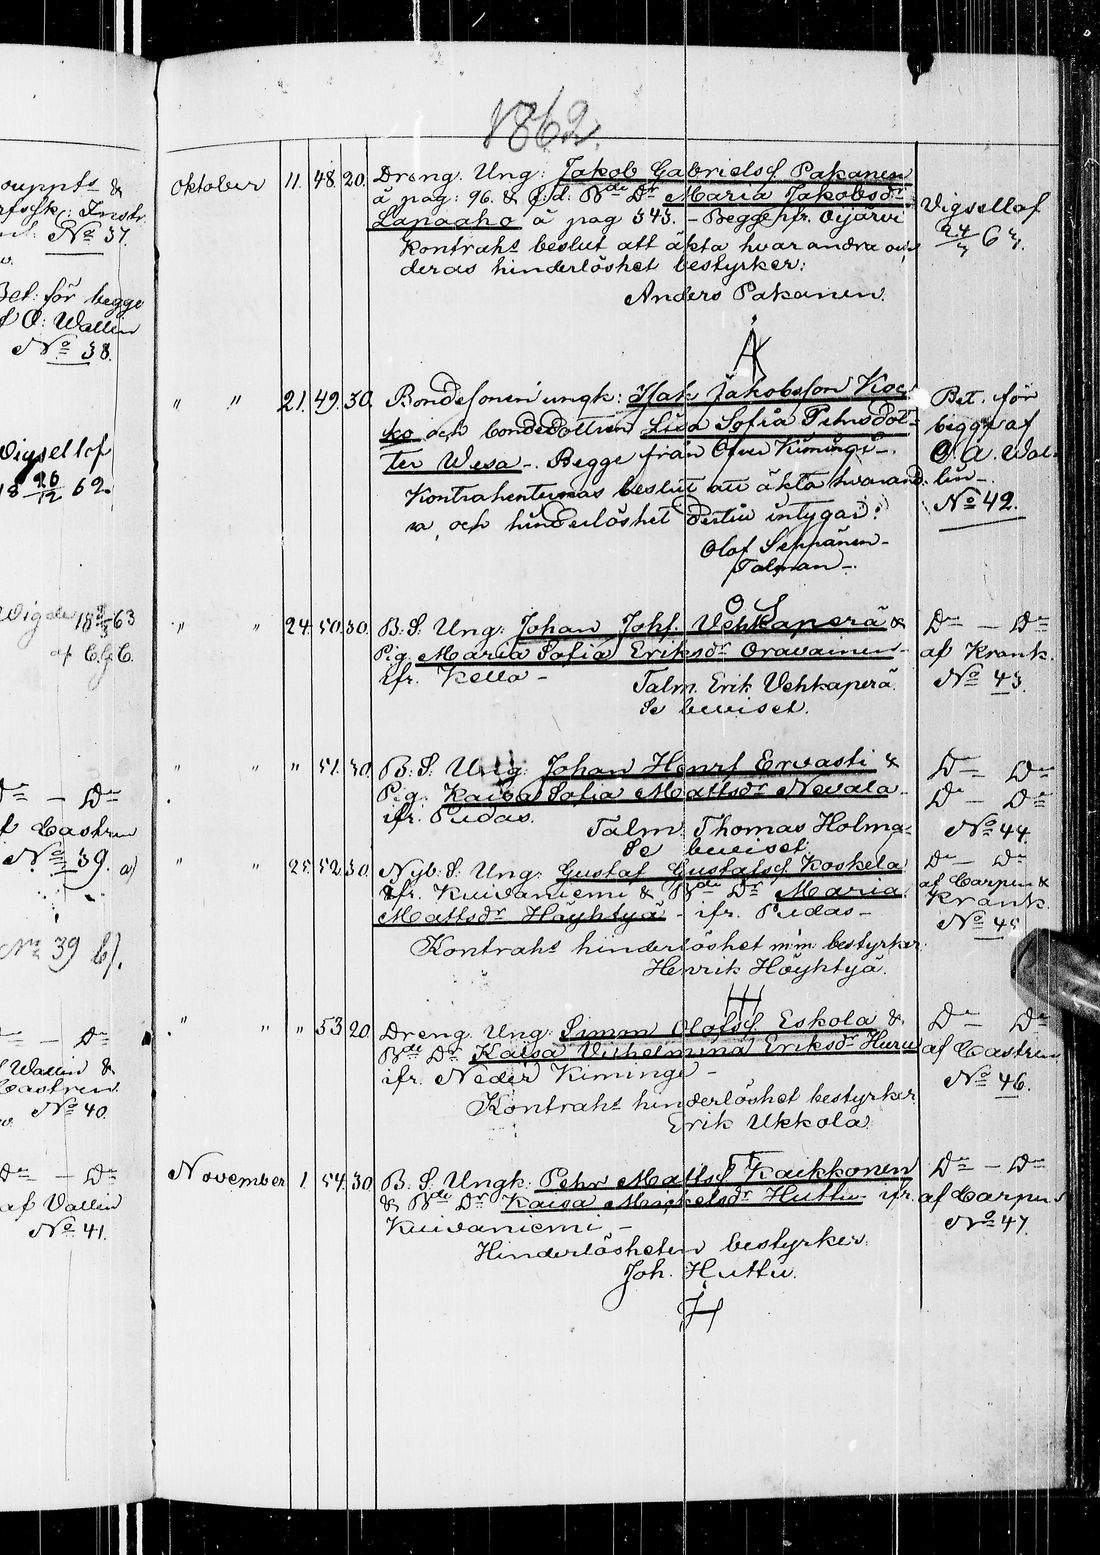 1862.
ouppts &
rfsfk: Instr.
No 37.
Bet: för begge
f O: Wallin
No 38.
Vigsellof
18 26/12 62.
Vigde 18 63
af C.G.C.
Dn — Do
f Castren
No 39. a)
No 39 b).
Do
f Wallin &
Castren.
No 40.
Do — Do
af Vallin
No 41.
Oktober 11. 48. 20. Dreng. Ung: Jakob Gabrielsf Pakanen
à pag: 96. & f.d: Bde Dr Maria Jakobsdr
Lapaaho à pag 343. - Begge ifr. Oijärvi
Kontrahs beslut att äkta hvarandra och
deras hinderlöshet bestyrker:
Anders Pakanen.
AK
Vigsellof
24/ 63.
" " 21. 49. 30. Bondesonen ungk: Isak Jakobsson Koc
ko och bondedottren Lisa Sofia Pehrsdot-
ter Wesa -. Begge från Öfver Kiminge -.
Kontrahenternas beslut att äkta hvarand-
ra, och hinderlöshet dertill intygar:
Olof Seppänen -
Talman -.
O S
Bet. för
begge af
O. A. Wal-
lin -.
No 42.
" " 24. 50. 30. B. S. Ung: Johan Johsf Vehkaperä &
Pig. Maria Sofia Eriksdr Oravainen -
ifr. Kello -
Talm. Erik Vehkaperä.
Se beviset.
Do — Do
af Krank.
No 43.
" " " 51. 30. B. S. Ung: Johan Henrsf Ervasti &
Pig. Kaisa Sofia Mattsdr Nevala -
ifr. Pudas.
Talm. Thomas Holma -
Se beviset
Do Do
Do — Do
No 44.
" " 25. 52. 30. Nyb. S. Ung: Gustaf Gustafsf Koskela
ifr. Kuivaniemi & Bde Dr Maria
Mattsdr Höyhtyä - ifr. Pudas -
Kontrahs hinderlöshet m.m. bestyrker.
Henrik Höyhtyä.
HH
Do — Do
af Carpen &
Krank.
No 45
" " " 53. 20. Dreng Ung: Simon Olofsf Eskola &
Bde Dr Kaisa Vilhelmina Eriksdr Huru
ifr. Neder Kiminge -
Kontrahs hinderlöshet bestyrker.
Erik Ukkola
Do Do
af Castren
No 46.
November 1. 54. 30. B. S. Ungk: Pehr Mattsf Kaikkonen
& Bde Dr Kaisa Mickelsdr Huttu ifr.
Kuivaniemi -
Hinderlösheten bestyrker.
Joh. Huttu.
JH
Do — Do
af Carpen
No 47.